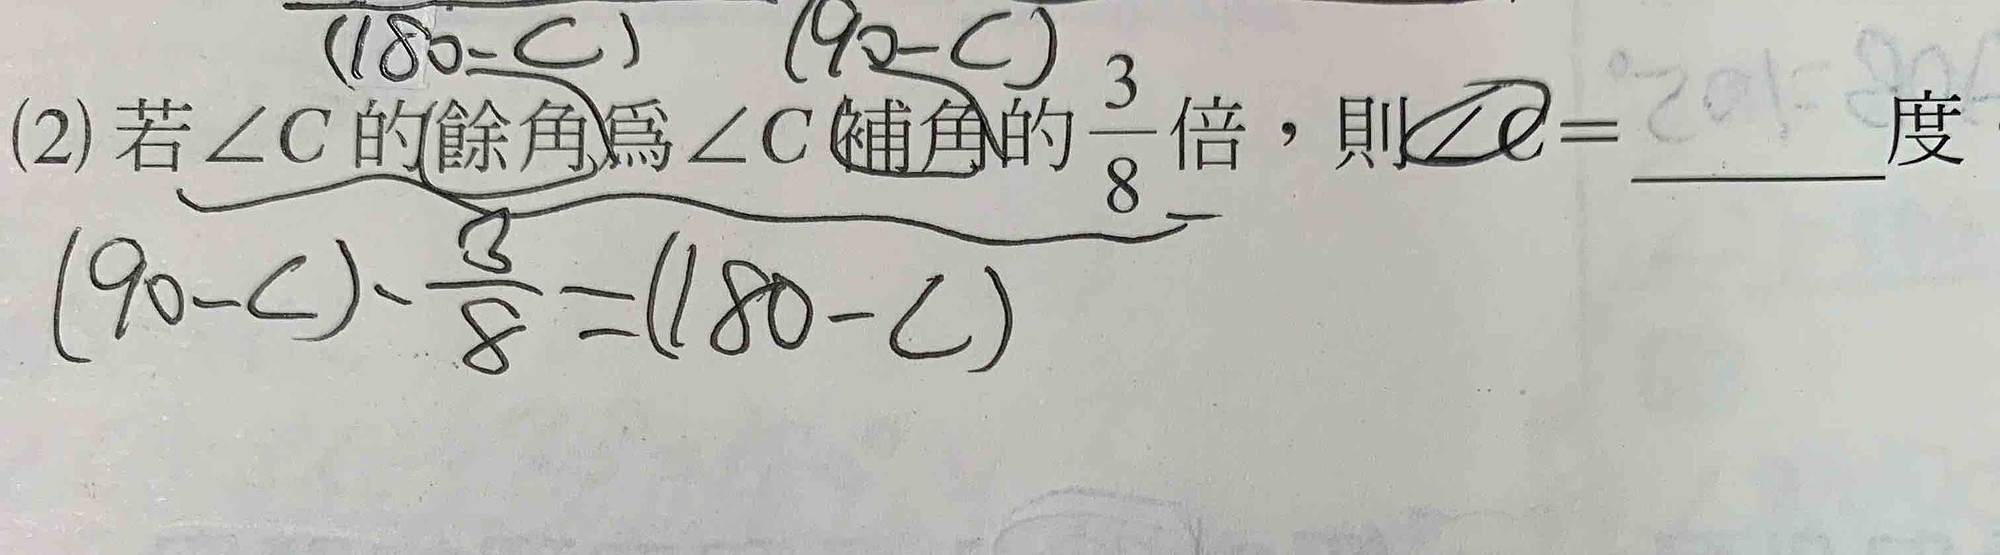 (180-C) (90-C)
(2) 若∠C的餘角為∠C補角的3/8倍,則∠C=______度
(90-C)·3/8=(180-C)